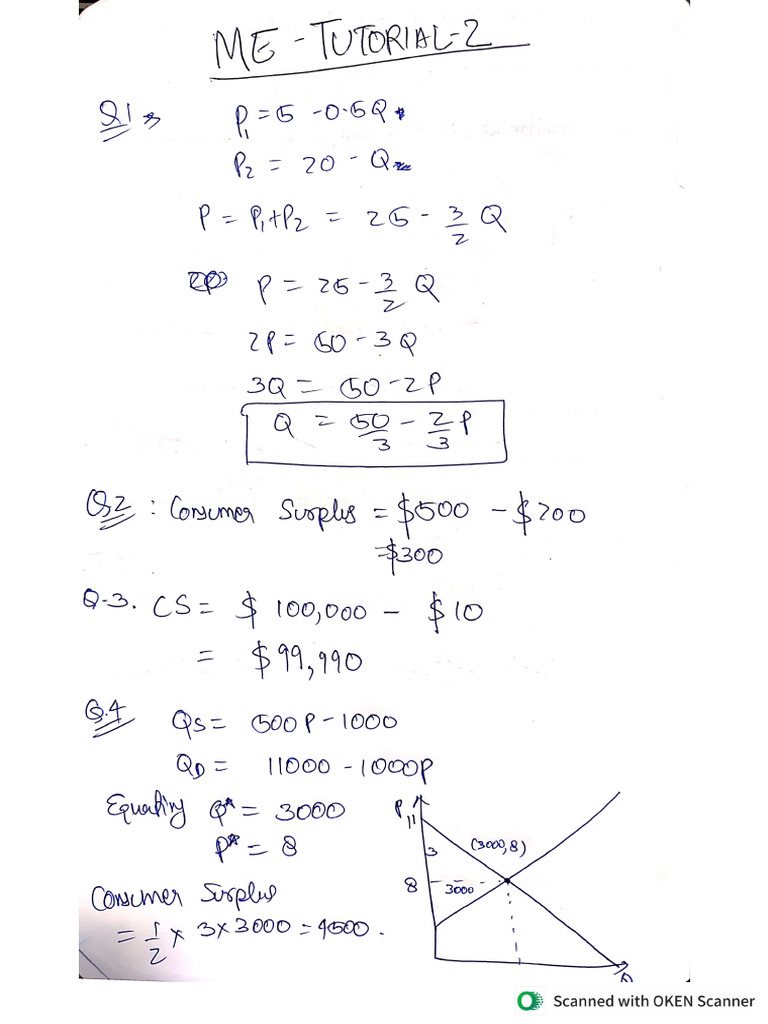 ME - TUTORIAL-2
Q1 → P₁ = 5 - 0.5Q
P₂ = 20 - Q
P = P₁+P₂ = 25 - 3/2 Q
P = 25 - 3/2 Q
2P = 50 - 3Q
3Q = 50 - 2P
Q = 50/3 - 2/3 P
Q2 : Consumer Surplus = $500 - $200
= $300
Q-3. CS = $ 100,000 - $10
= $99,990
Q.4 QS = 500P - 1000
QD = 11000 - 1000P
Equating Q* = 3000
P* = 8
Consumer Surplus
= 1/2 × 3 × 3000 = 4500.
P
11
3
(3000,8)
8
3000
Scanned with OKEN Scanner